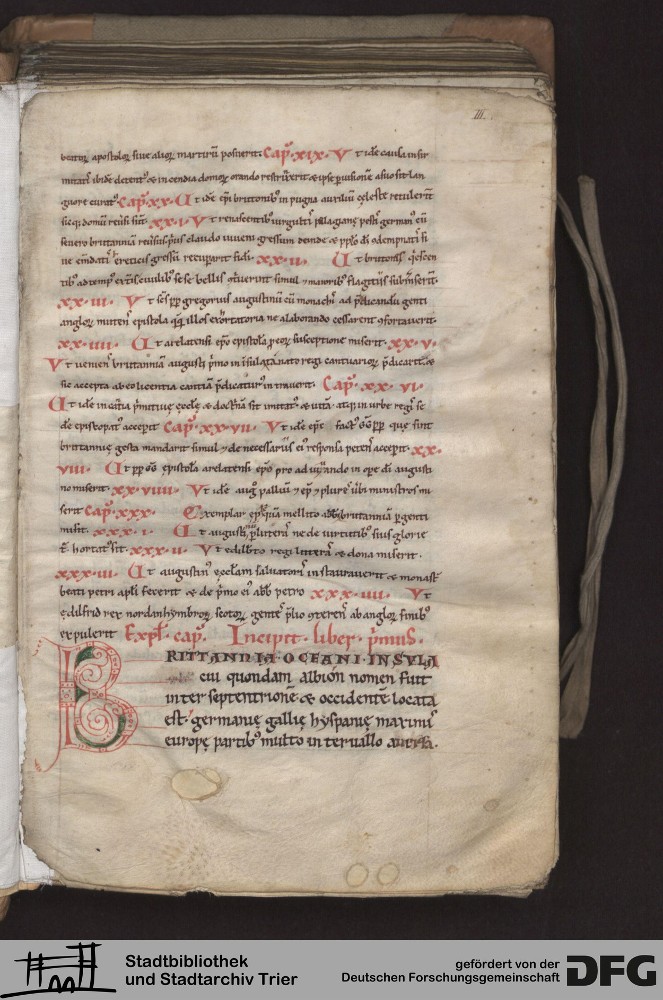 III.
beatoꝝ apostoloꝝ siue alioꝝ martirū posuerit Cap̄. XIX. Vt idē causa infir
mitatꝭ ibidē detentꝰ & incendia domoꝝ orando restrīxerit & ipse ꝑ uisionē a suo sit lan
guore curatꝰ Cap̄. XX. Ut idē ep̄i brittonibꝫ in pugna auxiliū cęleste tulerīt
sicq; domū reuersi sint. XX.I. Vt renascentibꝫ uirgultꝭ pelagianę pestꝭ germanꝰ cū
seuero brittaniā reuersus prius claudo iuueni gressum deinde & pplo dī
ne emdatꝭ ereticis gressū recuperarit fidi. XX.II. Ut brittonꝭ qescen
tibꝫ ad tempꝰ extꝭ ciuilibꝫ sese bellis simul & maioribꝫ flagitiis submerserīt.
XX.III. Vt scs pp gregorius augustinū cū monachꝭ ad p̄dicandū genti
angloꝝ mittenꝭ epistola qq; illos exortatoria ne a laborando cessarent 9fortauerit.
XX.IIII. Ut arelatensi ep̄o epistolā ꝓ eoꝝ susceptione miserit. XX.V.
Vt uenienꝭ brittanniā augustꝭ p̄mo in insula tanato regi cantuarioꝝ p̄dicarit. &
sic accepta ab eo licentia cantiā p̄dicaturꝰ intrauerit. Cap̄. XX.VI.
Ut idē in cātia p̄mitiuę ęccłę & doctrīā sit imitatꝰ & uitā. atq; in urbe regꝭ se
dē episcopatꝰ accepit Cap̄. XX.VII. Vt idē ep̄s factꝰ pp̄ que sint
brittannię gesta mandarit simul & de necessariis eiꝰ responsa petenꝭ accepit. XX.
VIII. Ut pp epistolā arelatensi ep̄o pro adiuuando in opere dī augusti
no miserit. XX.VIIII. Vt idē aug̅ palliū & ep̄ & plures ūbi ministros mi
serit Cap̄. XXX. Exemplar epła quā mellito abbi brittanniā ꝑgenti
misit. XXX.I. Ut augustꝭ ꝑ litterā ne de uirtutibꝰ suis glorie
t̄ hortatꝰ sit. XXX.II. Vt edilbto regi litterā & dona miserit.
XXX.III. Ut augustinꝰ ęccłam saluatorꝭ instaurauerit & monast
beati petri apłi fecerit & de p̄mo eiꝰ abb̄ petro XXX.IIII. Vt
ędilfrid rex nordanhymbroꝝ scotoꝝ gentē p̄lio 9terenꝭ ab angloꝝ finibꝰ
expulerit Expł. cap̄. Incipit. liber. p̄mus.
BRITTANNIA. OCEANI. INSULA
cui quondam albion nomen fuit
inter septentrionē & occidentē locata
est. germanię gallię hyspanię maximiꝰ
europę partibꝰ multo interuallo auersa.
Stadtbibliothek
und Stadtarchiv Trier
gefördert von der
Deutschen Forschungsgemeinschaft
DFG